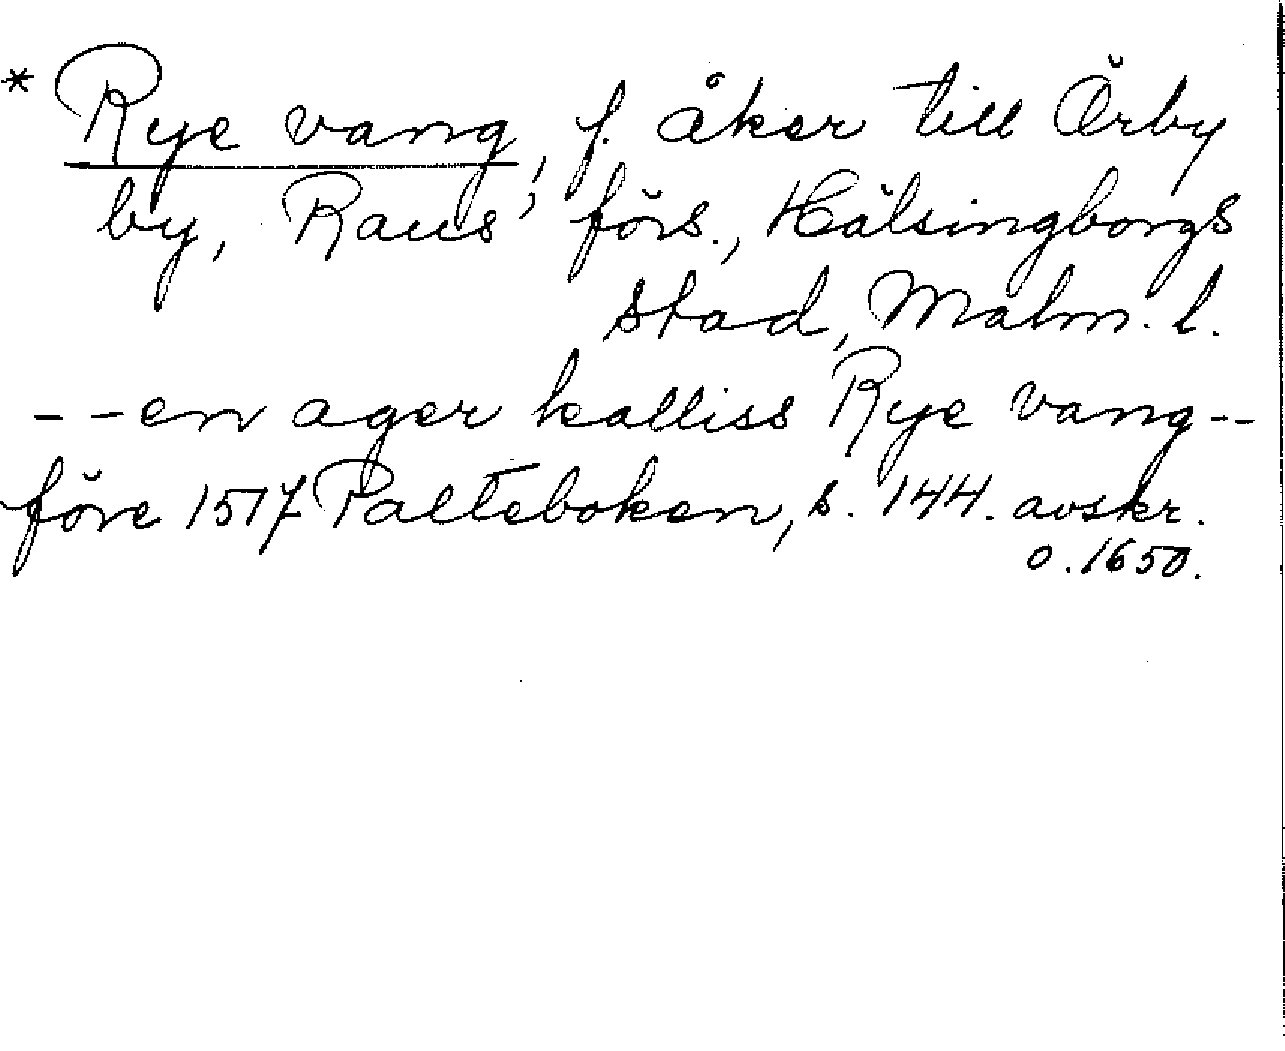 * Rye vang, f. åker till Örby
by, Raus' förs., Hälsingborgs
stad, Malm. l.
-- en ager kalliss Rye vang --
före 1517 Palteboken, s. 144. avskr.
o. 1650.